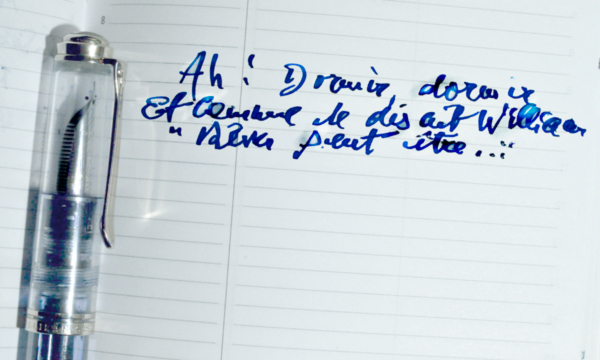 Ah ! Dormir, dormir
Et comme le disait William
" Rêver peut être..."